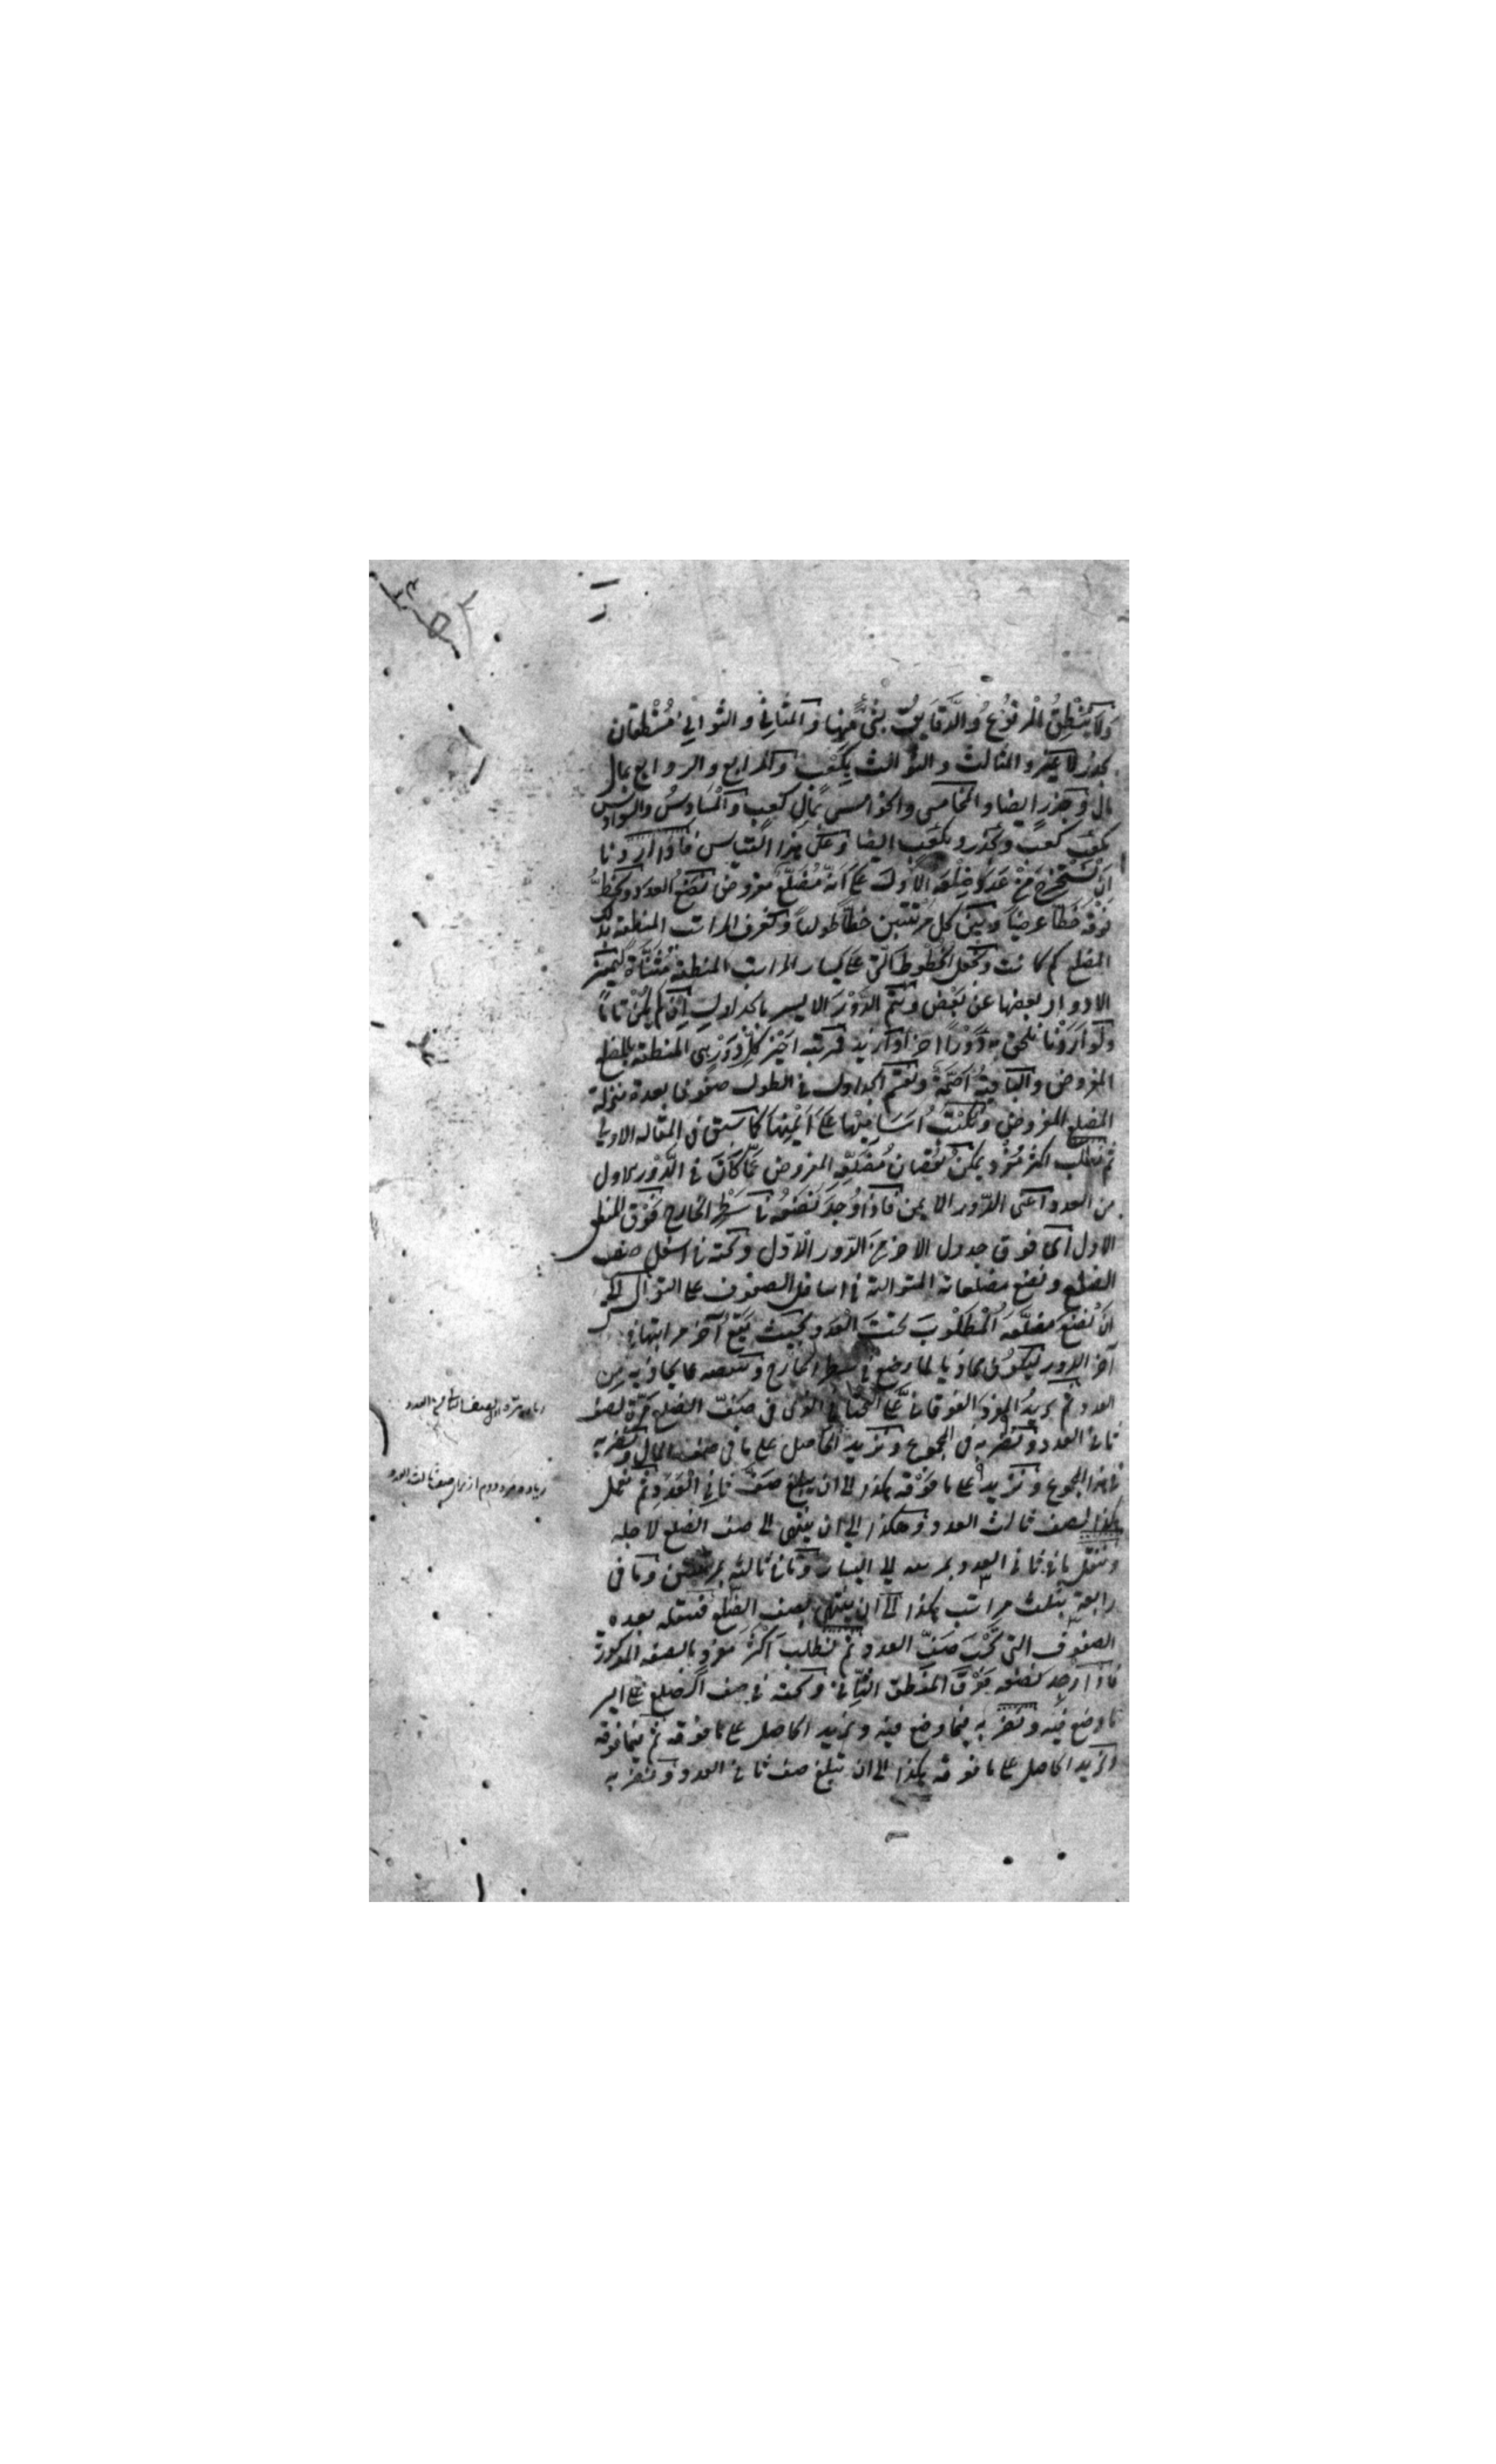 ولا ينطق المرفوع والدقايق بشئ منها والمثاني والثواني منطقان
بجذر لا غير والمثالث والثوالث بكعب والمرابع والروابع بمال
مال وبجذر ايضا والمخامس والخوامس بمال كعب والمسادس والسوادس
بكعب كعب وبجذر وبكعب ايضا وعلى هذا القياس فاذا اردنا
ان نستخرج من عدد ضلعه الاول على انه مضلع مفروض نضع العدد ونخط
فوقه خطا عرضيا وبين كل مرتبتين خطا طوليا ونعرف المراتب المنطقة بذلك
المضلع كم كانت ونجعل الخطوط التي على يسار المراتب المنطقة مثناة ليتميز
الادوار بعضها عن بعض ونتم الدور الايسر بالجداول ان لم يكن تاما
ولو اردنا نلحق به دورا اخر او ازيد فمرتبة اخير كل دور هي المنطقة بالمضلع
المفروض والباقية اصم ونقسم الجداول في الطول صفوفا بعدة منزلة
المضلع المفروض ونكتب اساميها على ايمنها كما سبق في المقالة الاولى
ثم نطلب اكثر مفرد يمكن نقصان مضلعه المفروض عما كان في الدور الاول
من العدد اعنى الدور الايمن فاذا وجد نضعه في سطر الخارج فوق المنطق
الاول اى فوق جدول الاخر من الدور الاول وتحته في اسفل صف
الضلع ونضع مضلعاته المتوالية في اسافل الصفوف على التوالى الى
ان نضع مضلعه المطلوب تحت العدد بحيث يقع آخر مراتبها في
آخر الدور ليكون محاذيا لما وضع في سطر الخارج وننقصه مما يحاذيه من
العدد ثم نزيد المفرد الفوقاني على التحتاني الذى في صف الضلع مرة لصف
ثاني العدد ونضربه في المجموع ونزيد الحاصل على ما في صف المال ونضربه
في هذا المجموع ونزيد على ما فوقه هكذا الى ان يبلغ صف ثاني العدد ثم نعمل
هكذا لصف ثالث العدد وهكذا الى ان ينتهى الى صف الضلع لاجله
وننقل ما في ثاني العدد بمرتبة الى اليسار وما في ثالثه بمرتبتين وما فى
رابعه بثلث مراتب هكذا الى ان ينتهى بصف الضلع فننقله بعدة
الصفوف التى تحت صف العدد ثم نطلب اكثر مفرد بالصفة المذكورة
فاذا وجد نضعه فوق المنطق الثاني وتحته في صف الضلع على يسار
ما وضع فيه ونضربه فيما وضع فيه ونزيد الحاصل على ما فوقه ثم فيما فوقه
ونزيد الحاصل على ما فوقه هكذا الى ان تبلغ صف ثاني العدد ونضربه